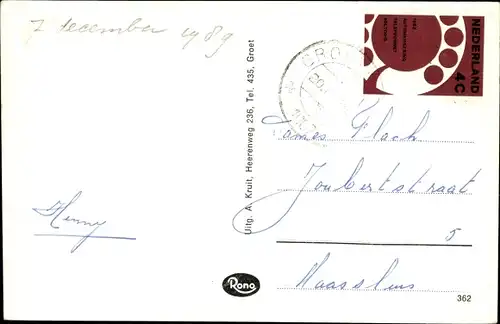 7 december 1989
Henny
Uitg. A. Kruit, Heerenweg 236, Tel. 435, Groet
Rono
GROET
NEDERLAND
4C
1962
AUTOMATISERING
TELEFOONNET
VOLTOOID
James Flach
Joubertstraat
5
Maassluis
362